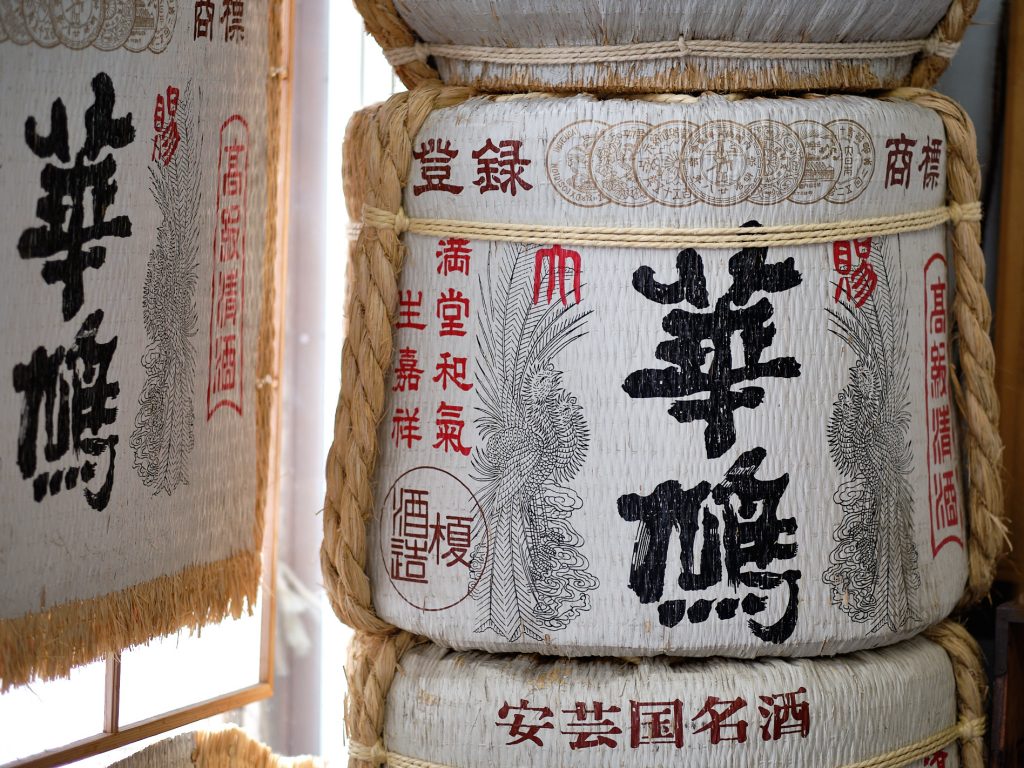 商標
賜
華鳩
高級清酒
登録
商標
大
賜
華鳩
高級清酒
満堂和氣
生嘉祥
榎
酒造
安芸国名酒